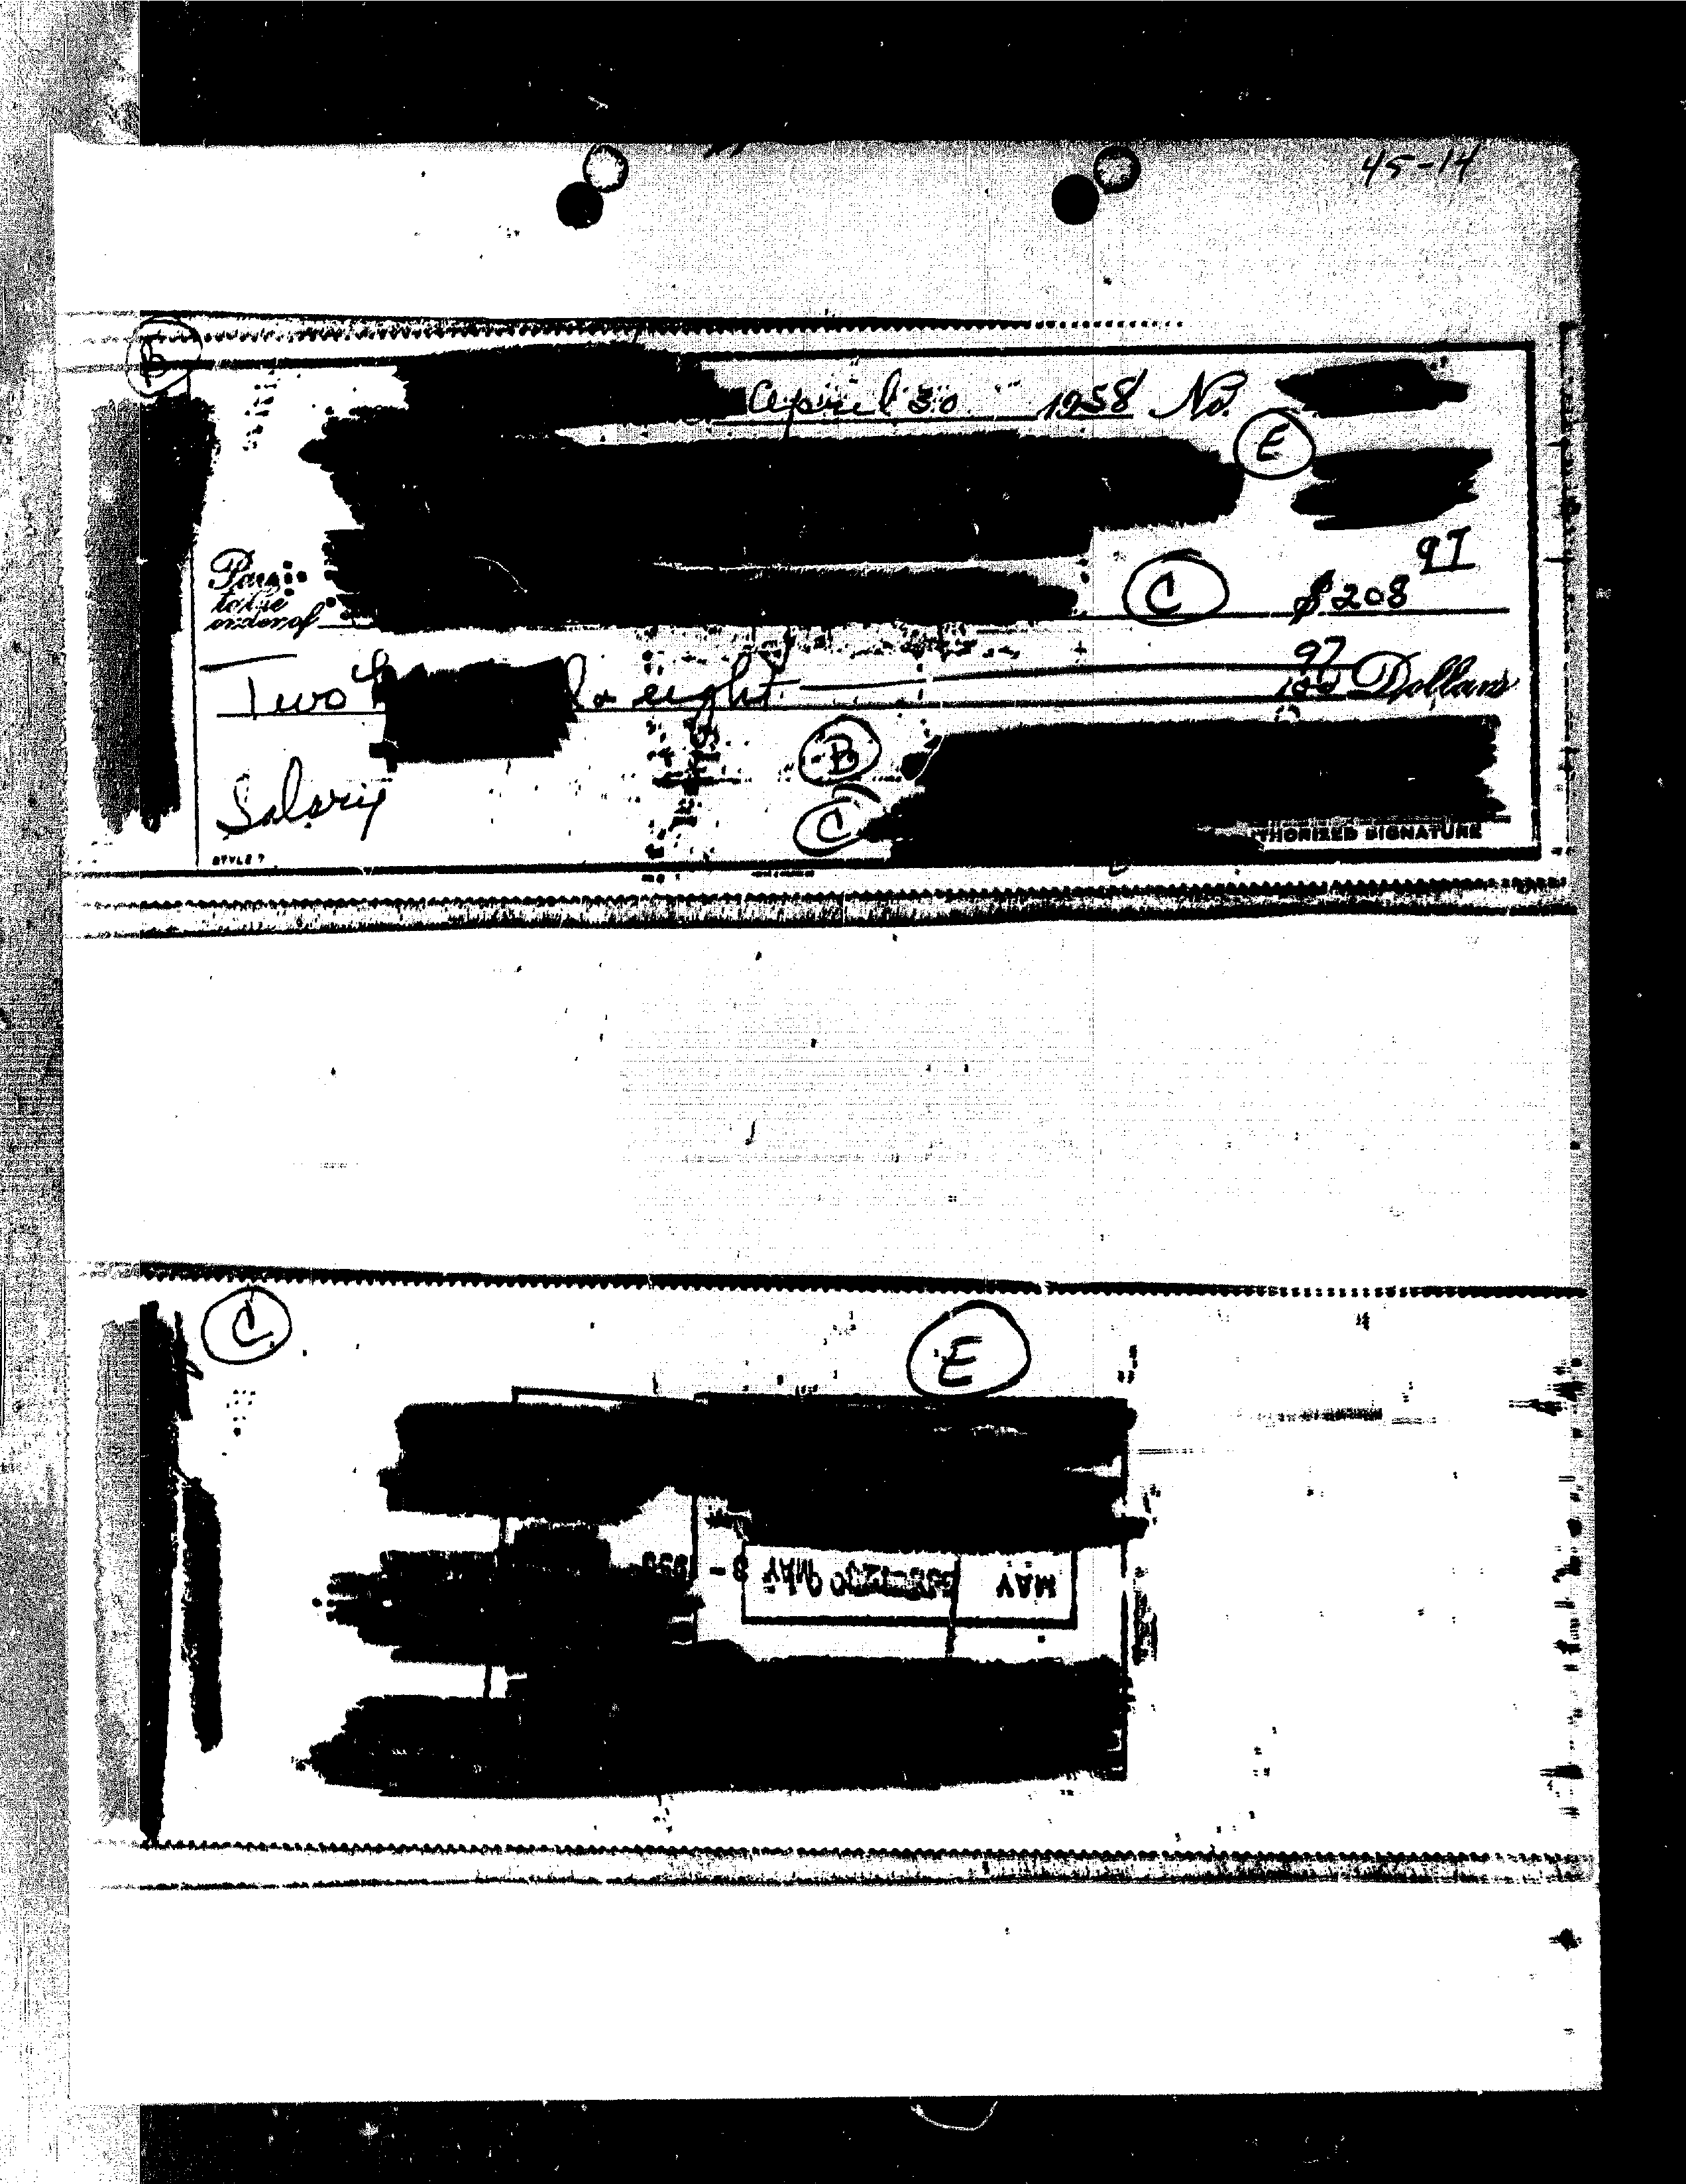 45-14
B
April 30 1958 No.
E
Pay
to the
order of C $208 97
Two & eight 97/100 Dollars
B
Salary
C
AUTHORIZED SIGNATURE
STYLE 7
C E
MAY